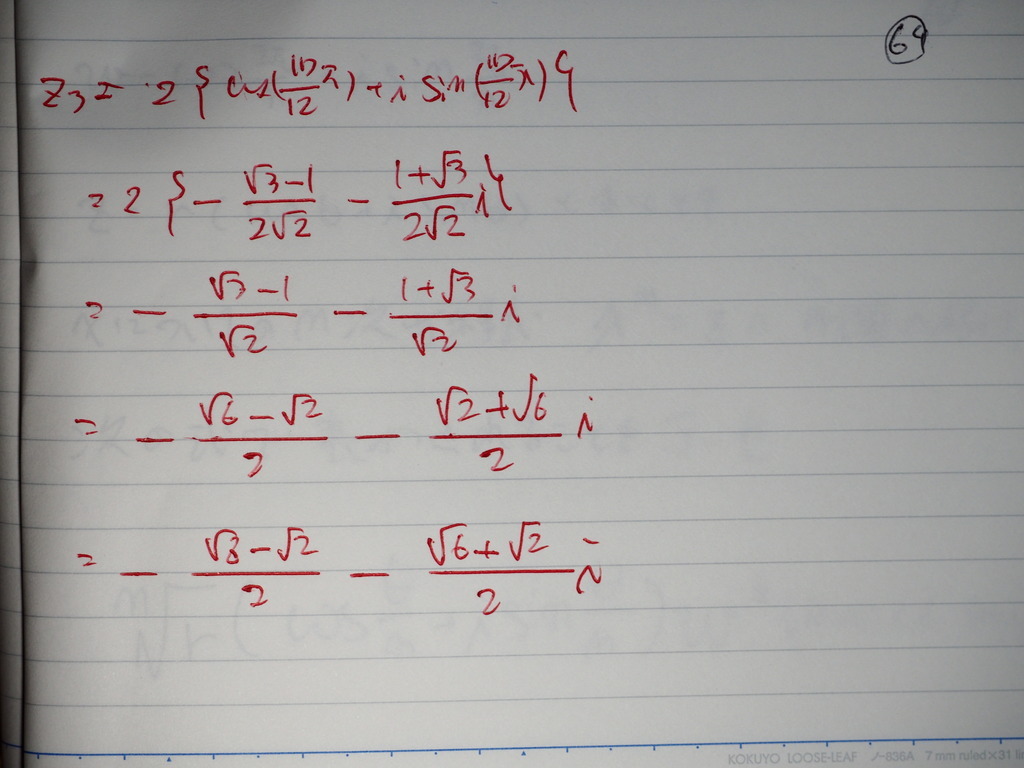 69
Z₃ = 2 { cos(17/12 π) + i sin(17/12 π) }
= 2 { - (√3-1)/(2√2) - (1+√3)/(2√2) i }
= - (√3-1)/√2 - (1+√3)/√2 i
= - (√6-√2)/2 - (√2+√6)/2 i
= - (√8-√2)/2 - (√6+√2)/2 i
KOKUYO LOOSE-LEAF ノ-836A 7mm ruled×31 li